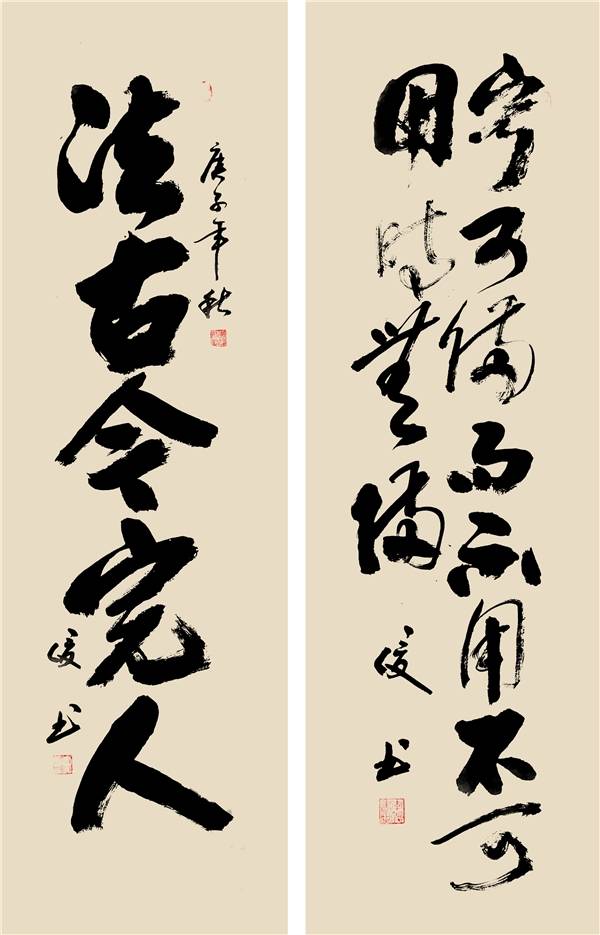 寧可備而不用不可
用時無備
俊书
庚子年秋
法古今完人
俊书